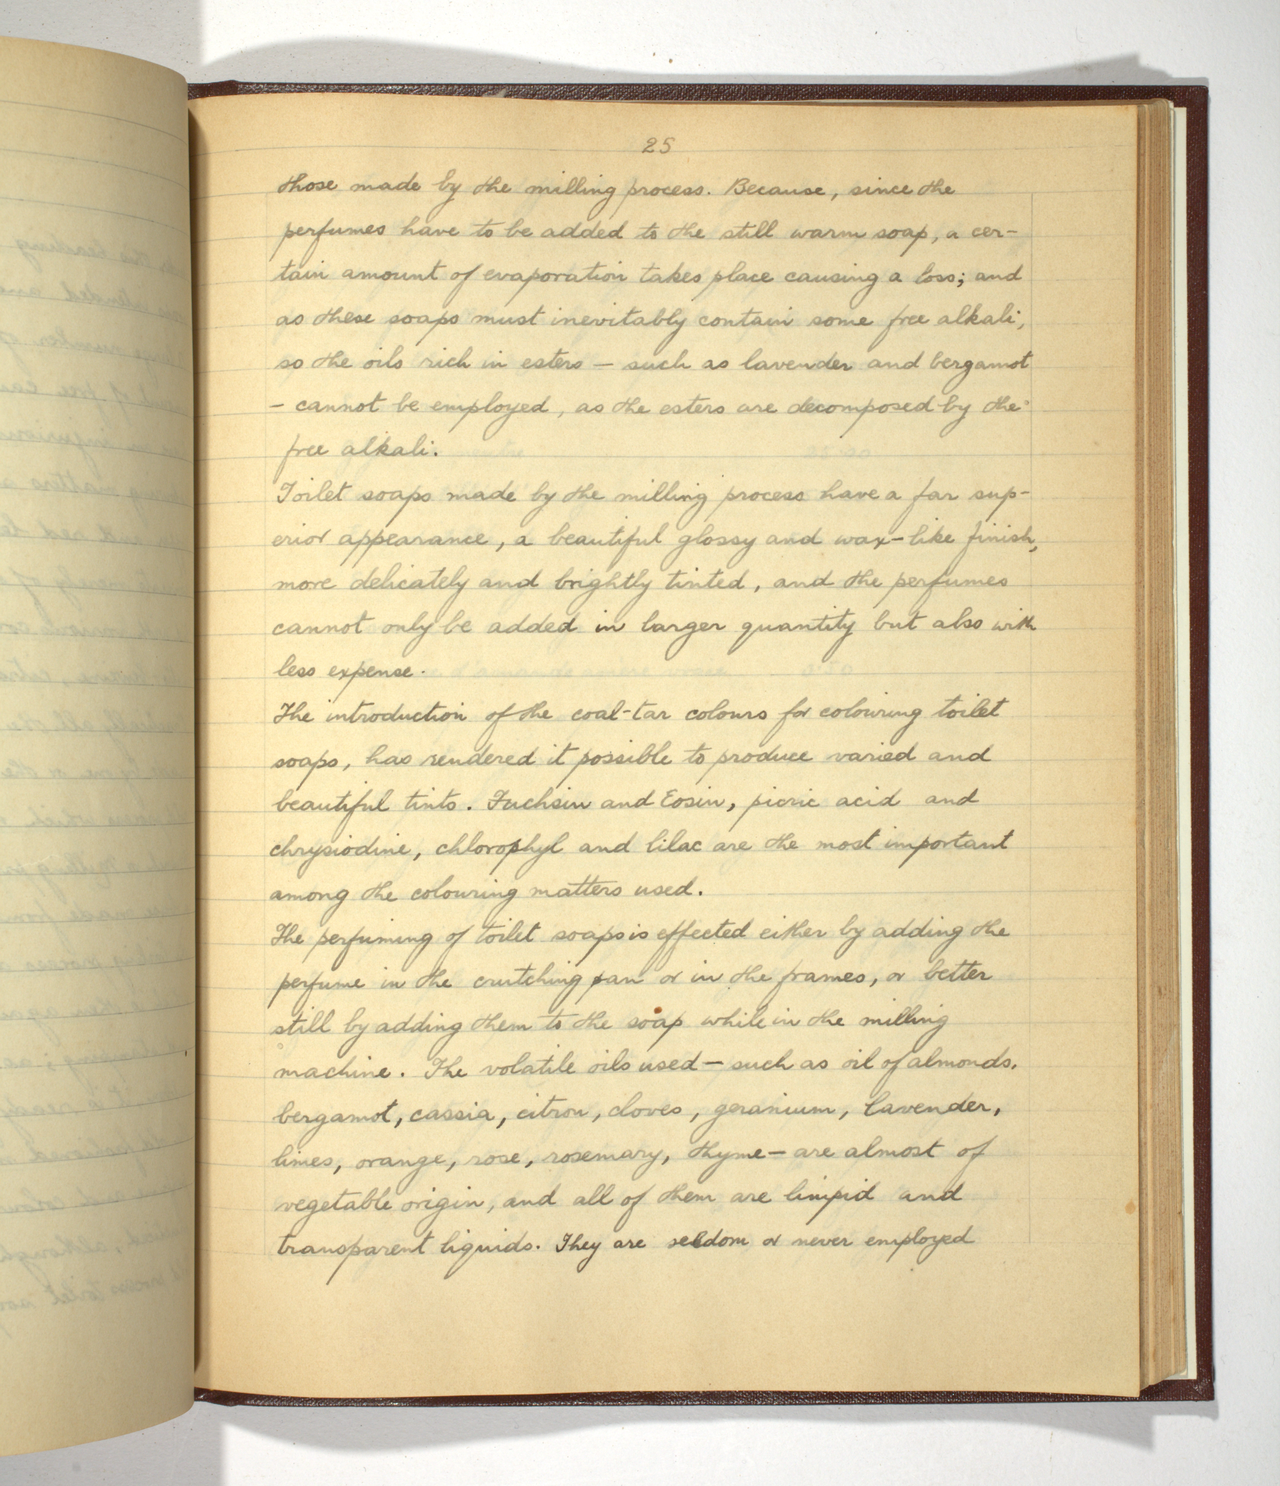 25
those made by the milling process. Because, since the
perfumes have to be added to the still warm soap, a cer-
tain amount of evaporation takes place causing a loss; and
as these soaps must inevitably contain some free alkali,
so the oils rich in esters — such as lavender and bergamot
— cannot be employed, as the esters are decomposed by the
free alkali.
Toilet soaps made by the milling process have a far sup-
erior appearance, a beautiful glossy and wax-like finish,
more delicately and brightly tinted, and the perfumes
cannot only be added in larger quantity but also with
less expense.
The introduction of the coal-tar colours for colouring toilet
soaps, has rendered it possible to produce varied and
beautiful tints. Fuchsin and Eosin, picric acid and
chrysiodine, chlorophyl and lilac are the most important
among the colouring matters used.
The perfuming of toilet soaps is effected either by adding the
perfume in the crutching pan or in the frames, or better
still by adding them to the soap while in the milling
machine. The volatile oils used — such as oil of almonds,
bergamot, cassia, citron, cloves, geranium, lavender,
limes, orange, rose, rosemary, thyme — are almost of
vegetable origin, and all of them are limpid and
transparent liquids. They are seldom or never employed